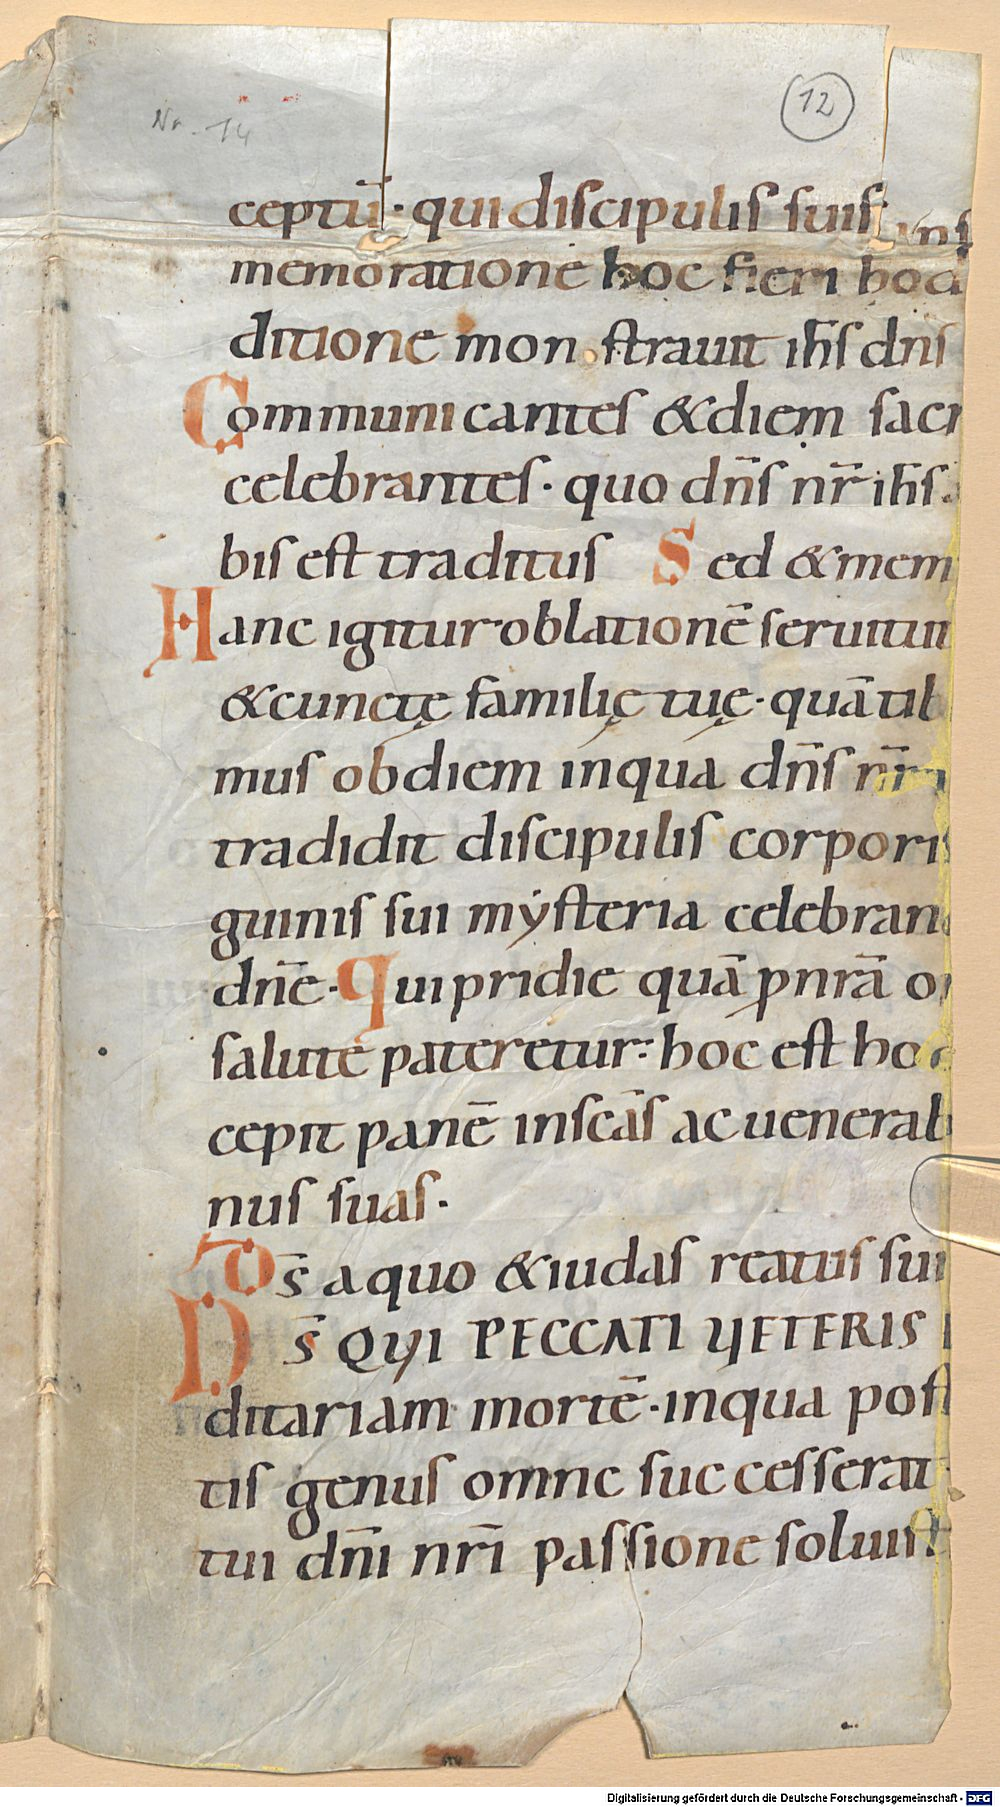 Nr. 14
12
ceptū· qui discipulis suis in s
memoratione hoc fieri hod
ditione monstrauit ih̅s dn̅s
Communicantes & diem sacr
celebrantes· quo dn̅s nr̅ ih̅s
bis est traditus Sed & mem
Hanc igitur oblationē seruitut
& cunctę familię tuę· quā tib
mus ob diem in qua dn̅s nr̅
tradidit discipulis corporis
guinis sui mẏsteria celebran
dn̅e· Qui pridie quā ꝑ nr̅ā o
salute pateretur· hoc est hod
cepit panē in sc̅as ac uenerab
nus suas·
D̅s a quo & iudas reatus sui
D̅S QUI PECCATI UETERIS
ditariam mortē· in qua post
tis genus omne successerat
tui dn̅i nr̅i passione soluist
Digitalisierung gefördert durch die Deutsche Forschungsgemeinschaft - DFG